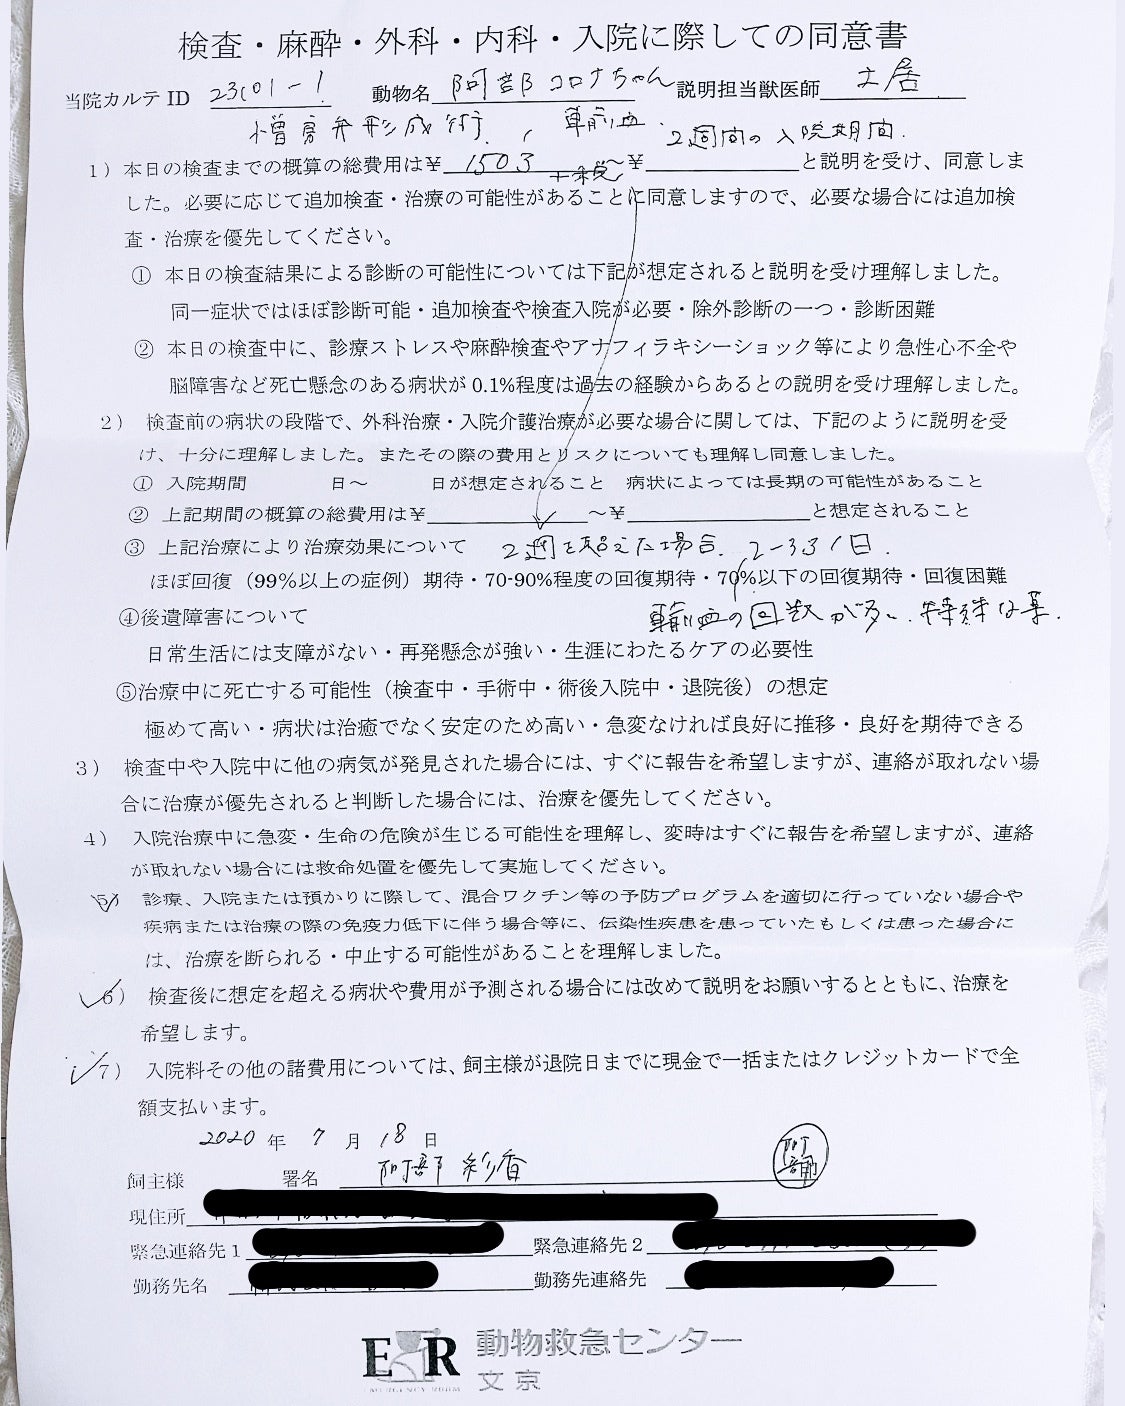 検査・麻酔・外科・内科・入院に際しての同意書
当院カルテ ID 23101-1 動物名 阿部コロナちゃん 説明担当獣医師 土居
僧房弁形成術、輸血. 2週間の入院期間.
1）本日の検査までの概算の総費用は￥ 150万 +税 ～￥ と説明を受け、同意しま
した。必要に応じて追加検査・治療の可能性があることに同意しますので、必要な場合には追加検
査・治療を優先してください。
① 本日の検査結果による診断の可能性については下記が想定されると説明を受け理解しました。
同一症状ではほぼ診断可能・追加検査や検査入院が必要・除外診断の一つ・診断困難
② 本日の検査中に、診療ストレスや麻酔検査やアナフィラキシーショック等により急性心不全や
脳障害など死亡懸念のある病状が 0.1%程度は過去の経験からあるとの説明を受け理解しました。
2） 検査前の病状の段階で、外科治療・入院介護治療が必要な場合に関しては、下記のように説明を受
け、十分に理解しました。またその際の費用とリスクについても理解し同意しました。
① 入院期間 日～ 日が想定されること 病状によっては長期の可能性があること
② 上記期間の概算の総費用は￥ ～￥ と想定されること
③ 上記治療により治療効果について 2週を超えた場合. 2-3万/日.
ほぼ回復（99%以上の症例）期待・70-90%程度の回復期待・70%以下の回復期待・回復困難
④後遺障害について 輸血の回数が多い. 特殊な薬.
日常生活には支障がない・再発懸念が強い・生涯にわたるケアの必要性
⑤治療中に死亡する可能性（検査中・手術中・術後入院中・退院後）の想定
極めて高い・病状は治癒でなく安定のため高い・急変なければ良好に推移・良好を期待できる
3） 検査中や入院中に他の病気が発見された場合には、すぐに報告を希望しますが、連絡が取れない場
合に治療が優先されると判断した場合には、治療を優先してください。
4） 入院治療中に急変・生命の危険が生じる可能性を理解し、変時はすぐに報告を希望しますが、連絡
が取れない場合には救命処置を優先して実施してください。
5） 診療、入院または預かりに際して、混合ワクチン等の予防プログラムを適切に行っていない場合や
疾病または治療の際の免疫力低下に伴う場合等に、伝染性疾患を患っていたもしくは患った場合に
は、治療を断られる・中止する可能性があることを理解しました。
6） 検査後に想定を超える病状や費用が予測される場合には改めて説明をお願いするとともに、治療を
希望します。
7） 入院料その他の諸費用については、飼主様が退院日までに現金で一括またはクレジットカードで全
額支払います。
2020 年 7 月 18 日
飼主様 署名 阿部 彩香 阿部
現住所
緊急連絡先1 緊急連絡先2
勤務先名 勤務先連絡先
ER 動物救急センター
EMERGENCY ROOM 文京